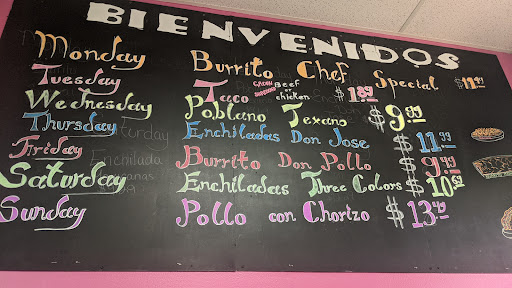 BIENVENIDOS
Monday Burrito Chef Special
Tuesday Taco Beef or chicken $1.89
Wednesday Poblano Texano $9.99
Thursday Enchiladas Don Jose $11.99
Friday Burrito Don Pollo $9.49
Saturday Enchiladas Three Colors $10
Sunday Pollo con Chorizo $13.49